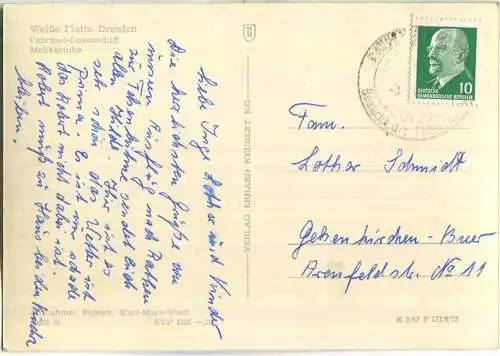 Weiße Flotte Dresden
Fahrgast-Luxusschiff
Mokkastube
Liebe Inge, Lothar und Kinder
Die herzlichsten Grüße von
unseren Ausflug nach Rathen
zur Felsenbühne sendet Euch
alle Hilde. Hier ist es
sehr schön. Das Wetter ist
prima. Es ist nur schade
das Robert nicht dabei ist.
Robert muß zu Haus bei den Kindern
bleiben.
Aufnahme: Pujsler, Karl-Marx-Stadt
EVP DM -,20
VERLAG ERHARD NEUBERT KG
DEUTSCHE
DEMOKRATISCHE REPUBLIK
10
Fam.
Lothar Schmidt
Gelsenkirchen-Buer
Arenfeldstr. No 11
K 3/63 F III/8/75